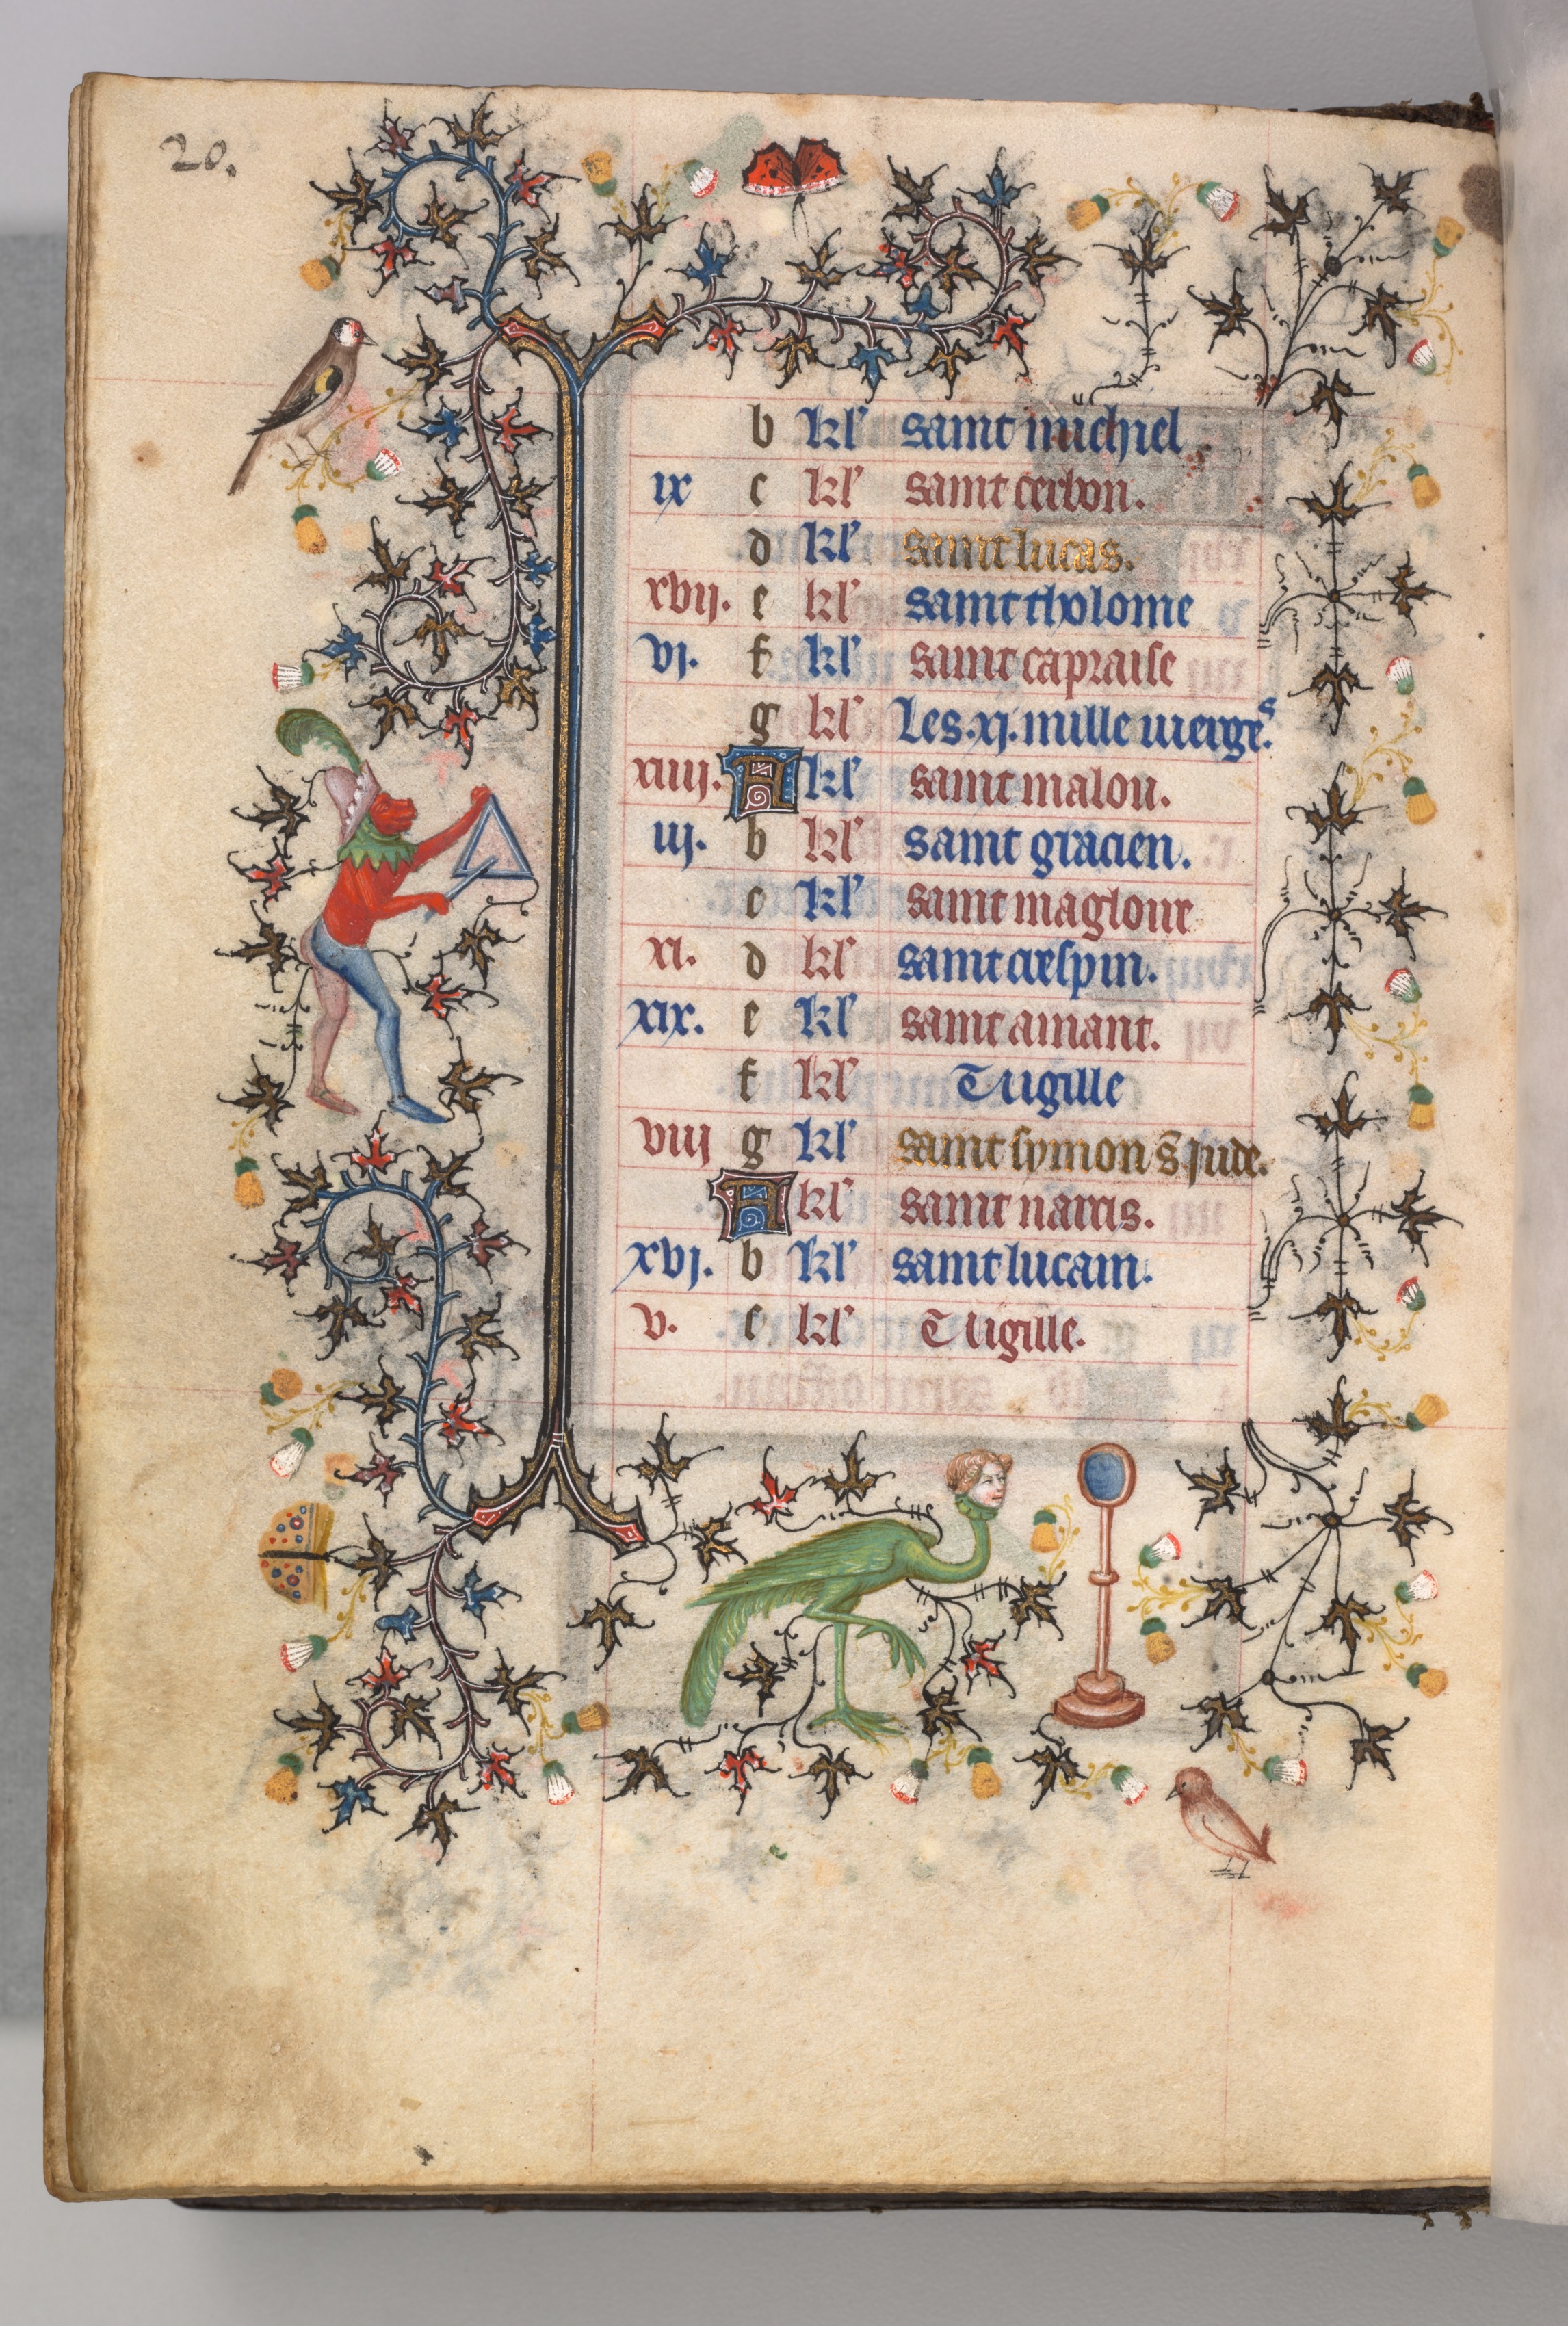 20.
b kl' saint michiel
ix c kl' saint cerbon.
d kl' saint lucas.
xvij. e kl' saint tholome
vj. f kl' saint capraise
g kl' Les .xj. mille vierges.
xiiij. A kl' saint malou.
iij. b kl' saint gracien.
c kl' saint magloire
xj. d kl' saint crespin.
xix. e kl' saint amant.
f kl' Vigille
viij g kl' saint symon s Jude.
A kl' saint narcis.
xvj. b kl' saint lucain.
v. c kl' Vigille.